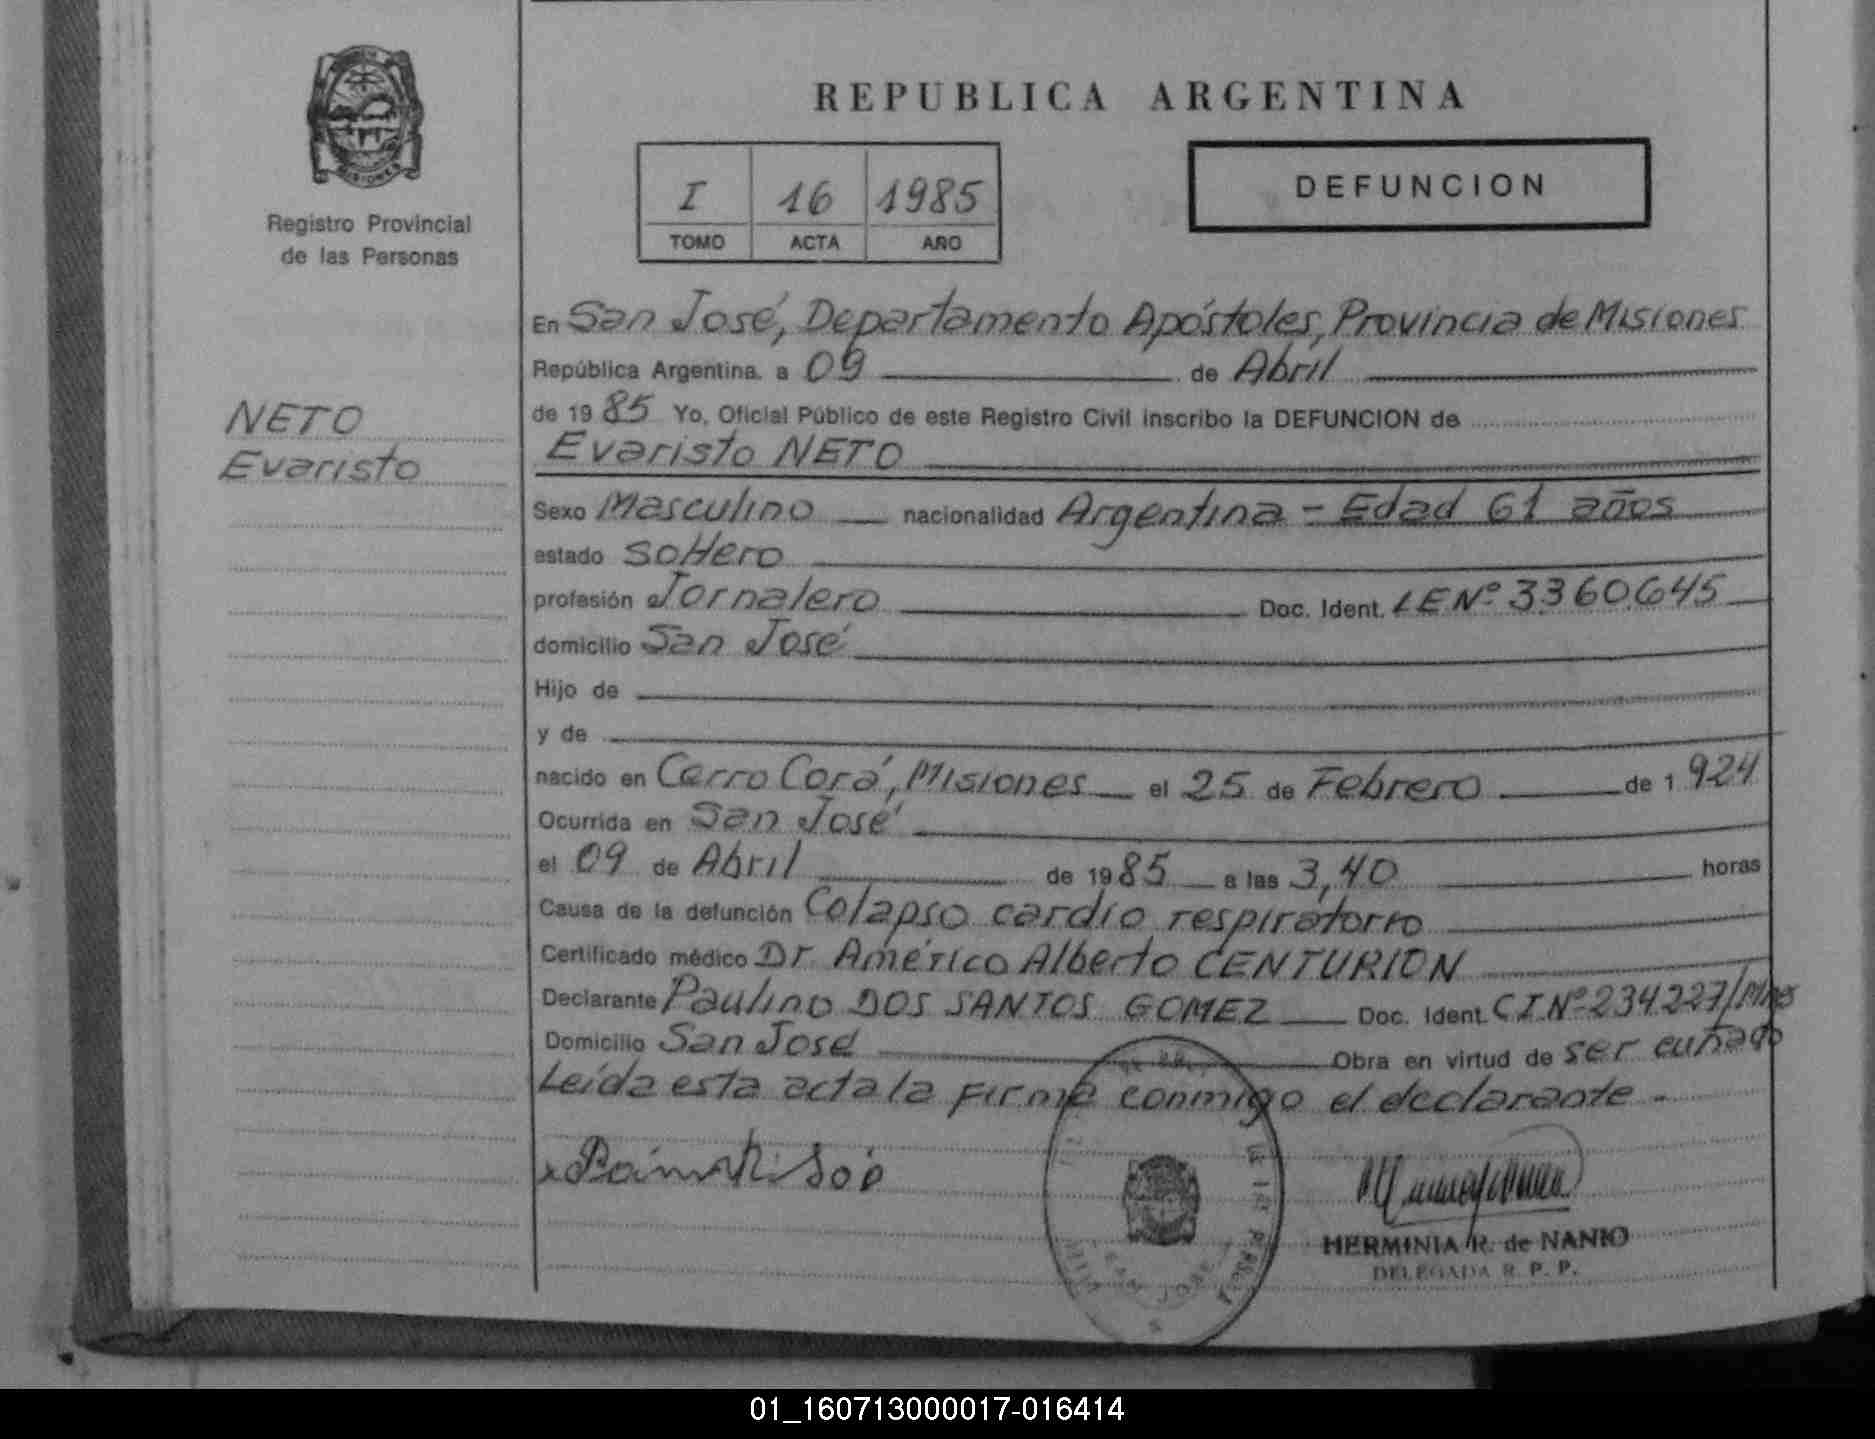 REPUBLICA ARGENTINA
MISIONES
Registro Provincial
de las Personas
I 16 1985
TOMO ACTA AÑO
DEFUNCION
NETO
Evaristo
En San José, Departamento Apóstoles, Provincia de Misiones
República Argentina, a 09 de Abril
de 1985 Yo, Oficial Público de este Registro Civil inscribo la DEFUNCION de
Evaristo NETO
Sexo Masculino nacionalidad Argentina - Edad 61 años
estado soltero
profesión Jornalero Doc. Ident. LE Nº 3360645
domicilio San José
Hijo de
y de
nacido en Cerro Corá, Misiones el 25 de Febrero de 1924
Ocurrida en San José
el 09 de Abril de 1985 a las 3,40 horas
Causa de la defunción Colapso cardio respiratorio
Certificado médico Dr. Américo Alberto CENTURION
Declarante Paulino DOS SANTOS GOMEZ Doc. Ident. C.I.Nº 234227/Mnes
Domicilio San José Obra en virtud de ser cuñado
Leída esta acta la firma conmigo el declarante -
SAN JOSE
HERMINIA R. de NANIO
DELEGADA R. P. P.
01_160713000017-016414